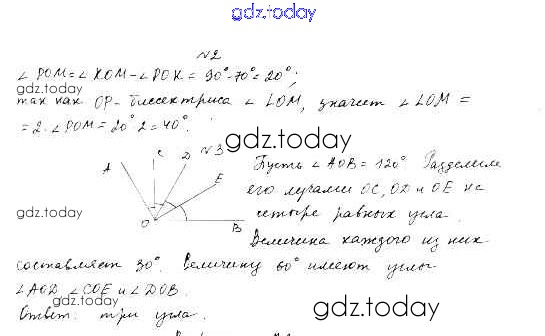 gdz.today
№2
∠POM=∠KOM-∠POK = 90°-70°=20°;
gdz.today
так как OP- биссектриса ∠LOM, значит ∠LOM =
= 2·∠POM = 20°·2=40°.
gdz.today
№3
A C D E O B
Пусть ∠AOB = 120° Разделим
его лучами OC, OD и OE на
gdz.today
четыре равных угла.
Величина каждого из них
составляет 30°. Величину 60° имеют углы
∠AOD ∠COE и ∠DOB.
gdz.today
Ответ: три угла.
gdz.today